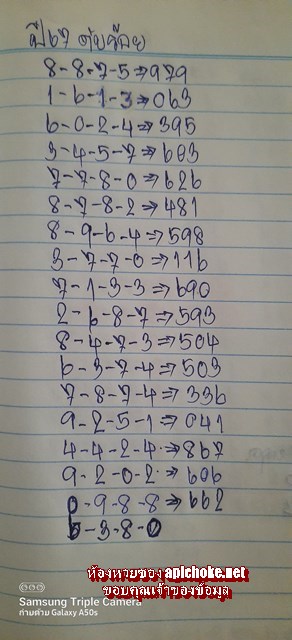 ปี67 ตุ้ยจ้อย
8-8-7-5⇒979
1-6-1-3⇒063
6-0-2-4⇒395
3-4-5-7⇒603
7-7-8-0⇒626
8-7-8-2⇒481
8-9-6-4⇒598
3-7-7-0⇒116
7-1-3-3⇒690
2-6-8-7⇒593
8-4-7-3⇒504
6-3-7-4⇒503
7-8-7-4⇒336
9-2-5-1⇒041
4-4-2-4⇒867
9-2-0-2⇒606
0-9-8-8⇒662
6-3-8-0
ห้องหวยของ apichoke.net
ขอบคุณเจ้าของข้อมูล
Samsung Triple Camera
ถ่ายด้วย Galaxy A50s